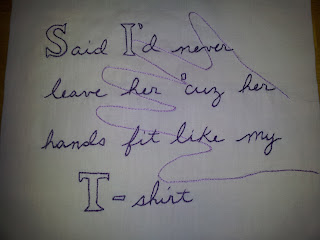 Said I'd never
leave her 'cuz her
hands fit like my
T-shirt